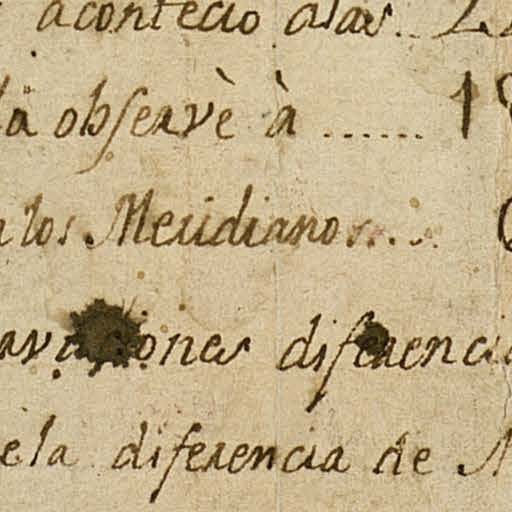 acontecio alas..
la obſervè à ...... 1
los Meridianos....
avaciones diferenci
ela diferencia de